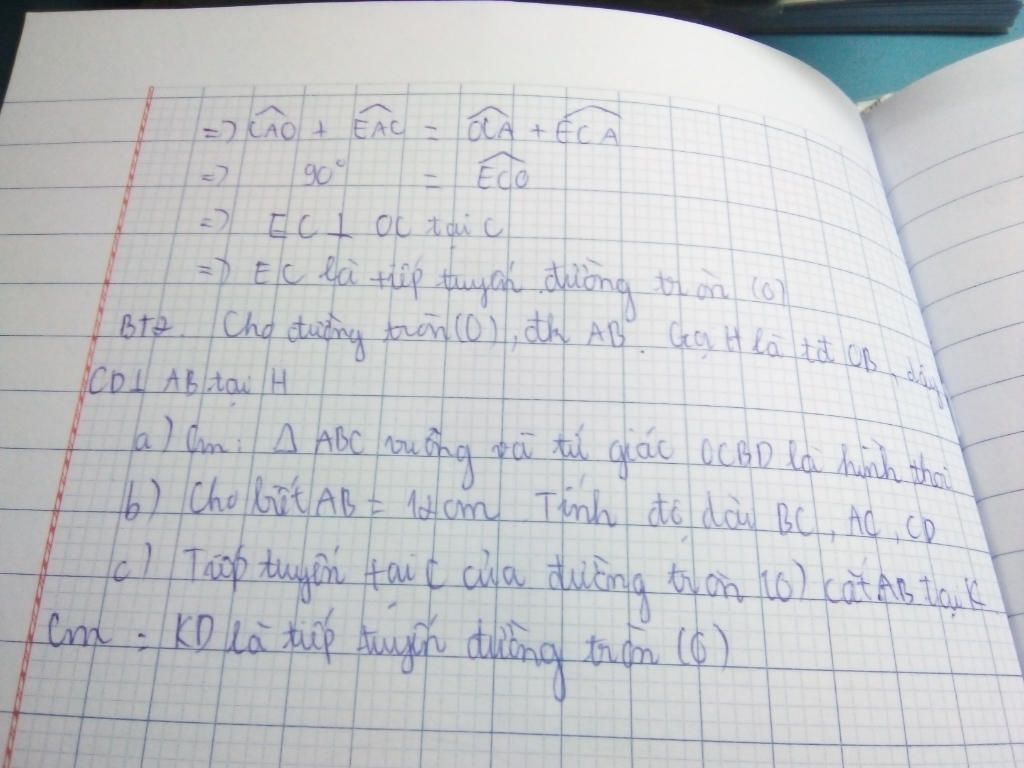 => CAO + EAC = OCA + ECA
=> 90° = ECO
=> EC ⊥ OC tại C
=> EC là tiếp tuyến đường tròn (O)
BT2. Cho đường tròn (O), đk AB. Gọi H là tđ OB, dây
CD ⊥ AB tại H
a) Cm: Δ ABC vuông và tứ giác OCBD là hình thoi
b) Cho biết AB = 12cm Tính độ dài BC, AC, CD
c) Tiếp tuyến tại C của đường tròn (O) cắt AB tại K
Cm: KD là tiếp tuyến đường tròn (O)